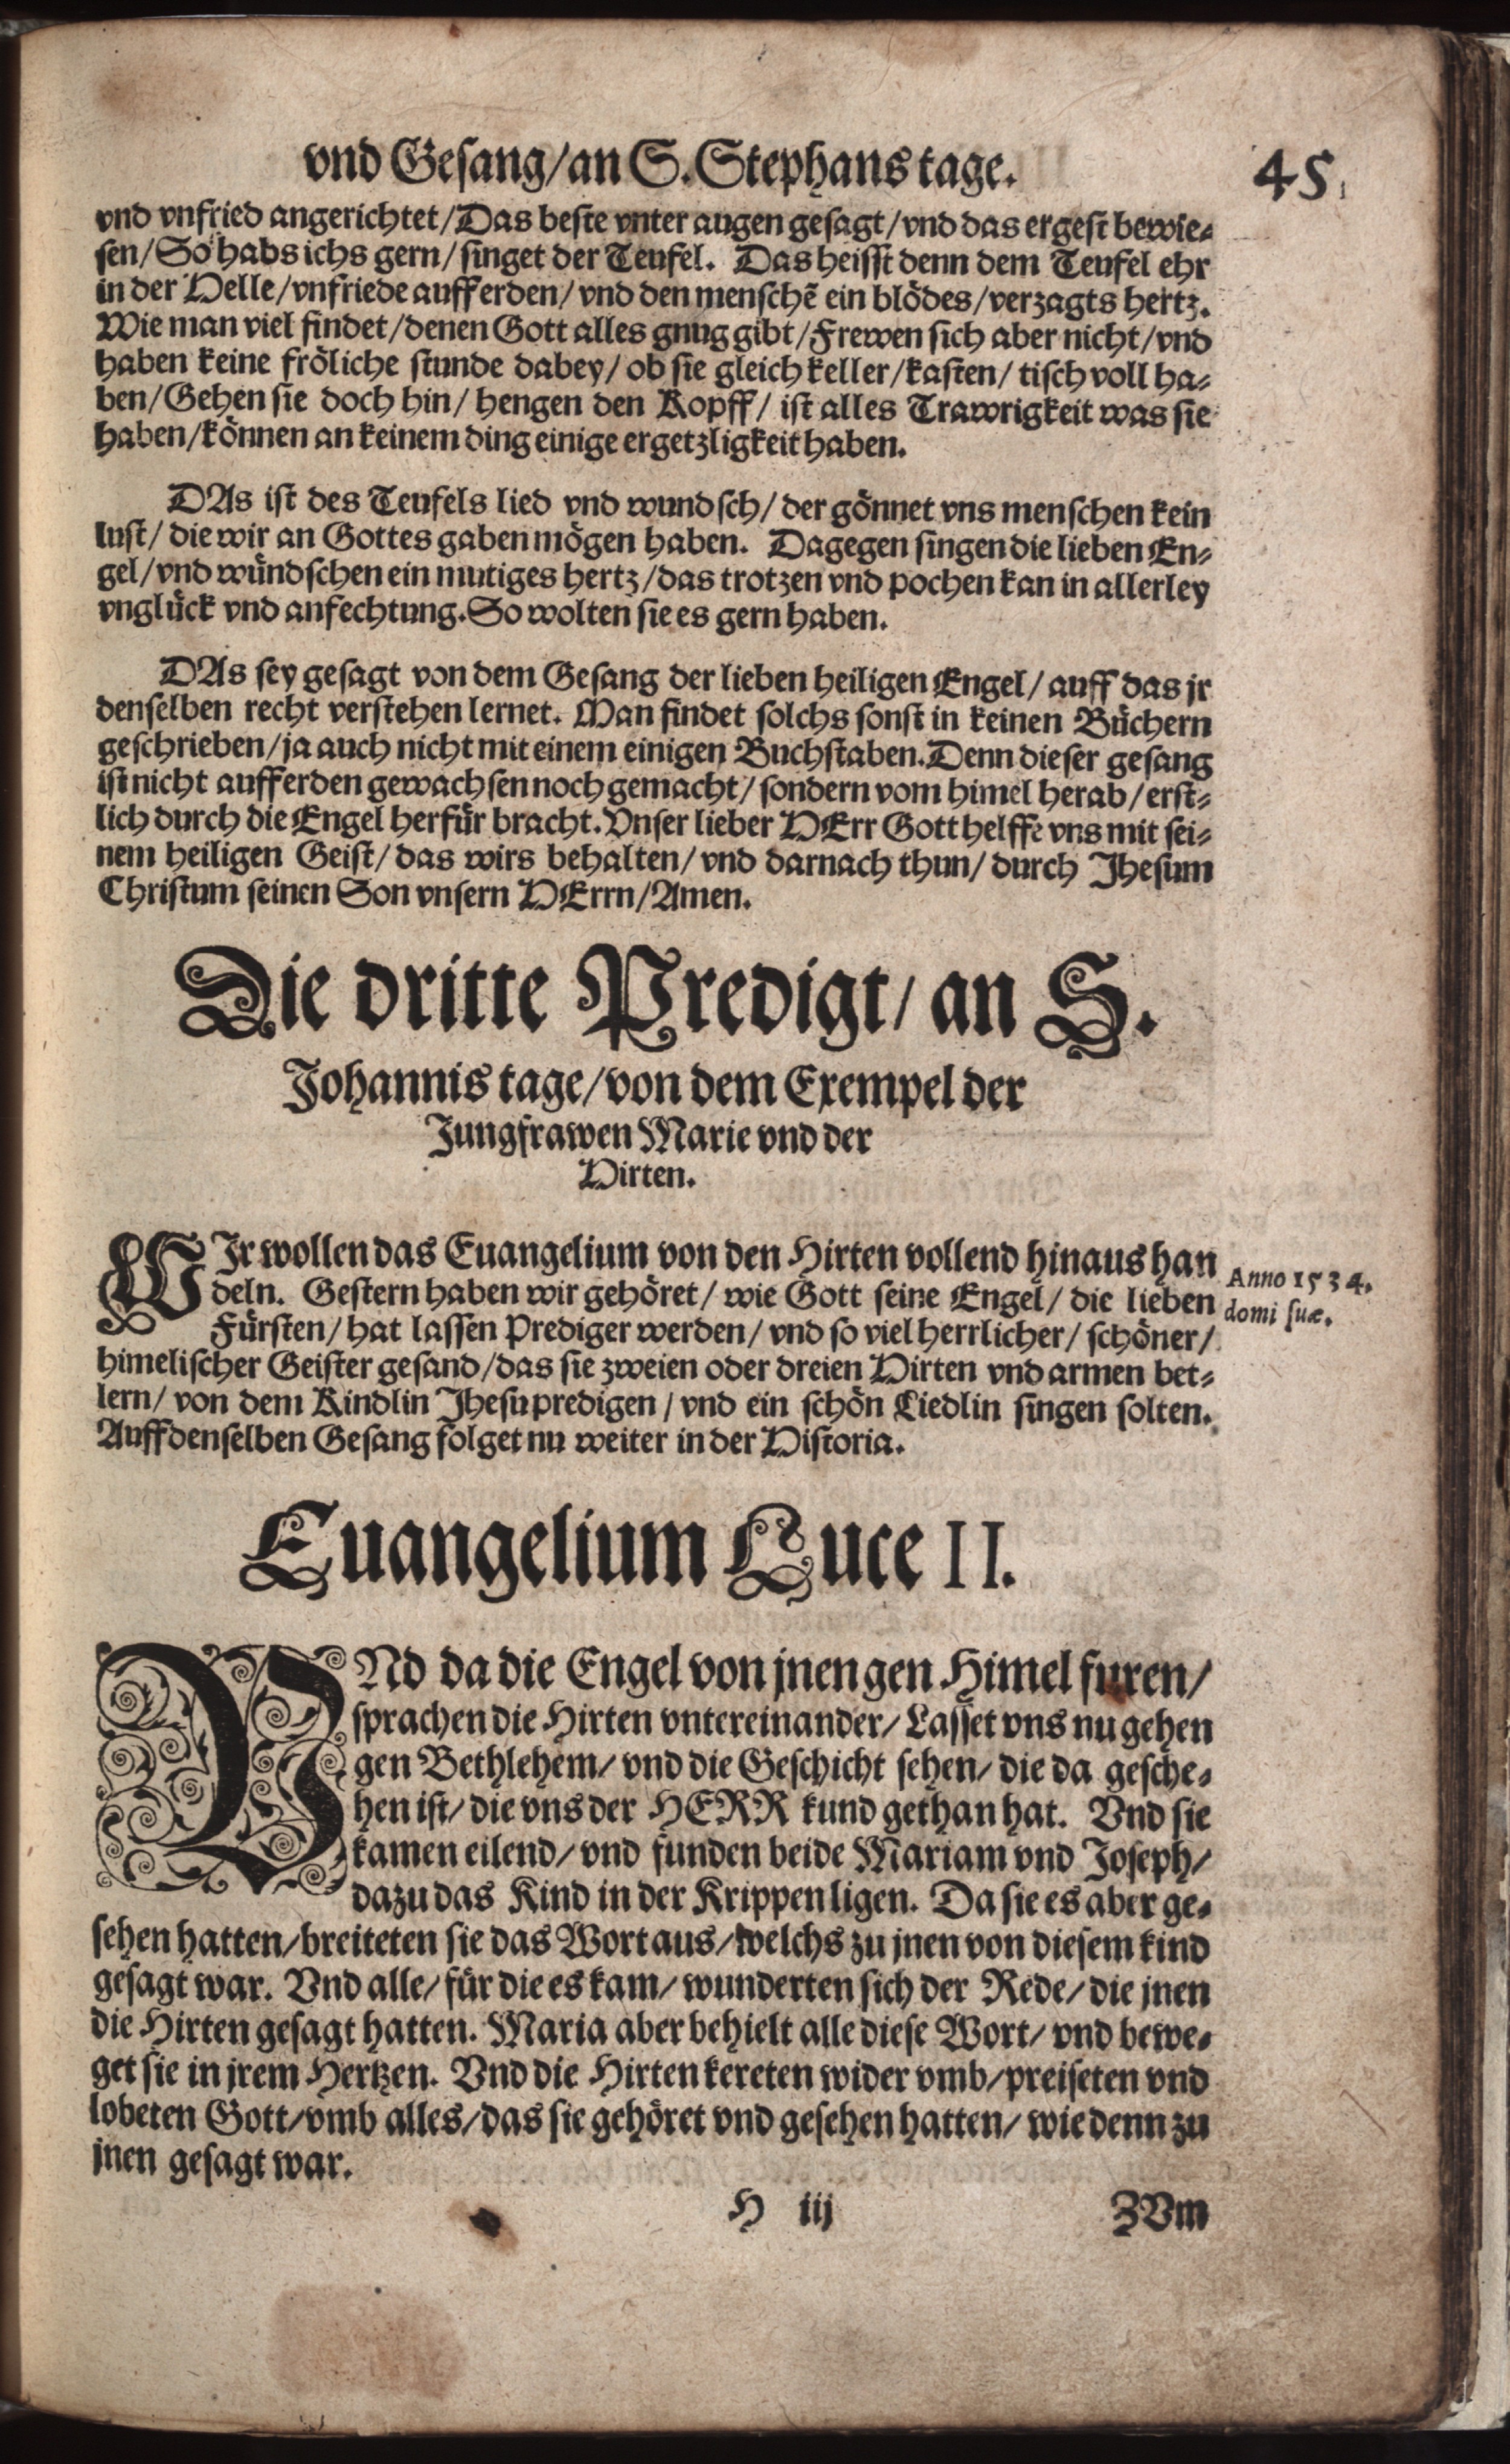 vnd Gesang/an S. Stephans tage.
45.
vnd vnfried angerichtet/Das beste vnter augen gesagt/vnd das ergest bewie⸗
sen/So habs ichs gern/singet der Teufel. Das heisst denn dem Teufel ehr
in der Helle/vnfriede auff erden/vnd den menschẽ ein blödes/verzagts hertz.
Wie man viel findet/denen Gott alles gnug gibt/Frewen sich aber nicht/vnd
haben keine fröliche stunde dabey/ob sie gleich keller/kasten/tisch voll ha⸗
ben/Gehen sie doch hin/hengen den Kopff/ist alles Trawrigkeit was sie
haben/können an keinem ding einige ergetzligkeit haben.
DAs ist des Teufels lied vnd wundsch/der gönnet vns menschen kein
lust/die wir an Gottes gaben mögen haben. Dagegen singen die lieben En⸗
gel/vnd wündschen ein mutiges hertz/das trotzen vnd pochen kan in allerley
vnglück vnd anfechtung. So wolten sie es gern haben.
DAs sey gesagt von dem Gesang der lieben heiligen Engel/auff das jr
denselben recht verstehen lernet. Man findet solchs sonst in keinen Büchern
geschrieben/ja auch nicht mit einem einigen Buchstaben. Denn dieser gesang
ist nicht auff erden gewachsen noch gemacht/sondern vom himel herab/erst⸗
lich durch die Engel herfür bracht. Vnser lieber HErr Gott helffe vns mit sei⸗
nem heiligen Geist/das wirs behalten/vnd darnach thun/durch Jhesum
Christum seinen Son vnsern HErrn/Amen.
Die dritte Predigt/an S.
Johannis tage/von dem Exempel der
Jungfrawen Marie vnd der
Hirten.
WIr wollen das Euangelium von den Hirten vollend hinaus han
deln. Gestern haben wir gehöret/wie Gott seine Engel/die lieben
Fürsten/hat lassen Prediger werden/vnd so viel herrlicher/schöner/
himelischer Geister gesand/das sie zweien oder dreien Hirten vnd armen bet⸗
lern/von dem Kindlin Jhesu predigen/vnd ein schön Liedlin singen solten.
Auff denselben Gesang folget nu weiter in der Historia.
Anno 1534.
domi suæ.
Euangelium Luce II.
VNd da die Engel von jnen gen Himel furen/
sprachen die Hirten vntereinander/Lasset vns nu gehen
gen Bethlehem/vnd die Geschicht sehen/die da gesche⸗
hen ist/die vns der HERR kund gethan hat. Vnd sie
kamen eilend/vnd funden beide Mariam vnd Joseph/
dazu das Kind in der Krippen ligen. Da sie es aber ge⸗
sehen hatten/breiteten sie das Wort aus/welchs zu jnen von diesem kind
gesagt war. Vnd alle/für die es kam/wunderten sich der Rede/die jnen
die Hirten gesagt hatten. Maria aber behielt alle diese Wort/vnd bewe⸗
get sie in jrem Hertzen. Vnd die Hirten kereten wider vmb/preiseten vnd
lobeten Gott/vmb alles/das sie gehöret vnd gesehen hatten/wie denn zu
jnen gesagt war.
H iij
ZVm